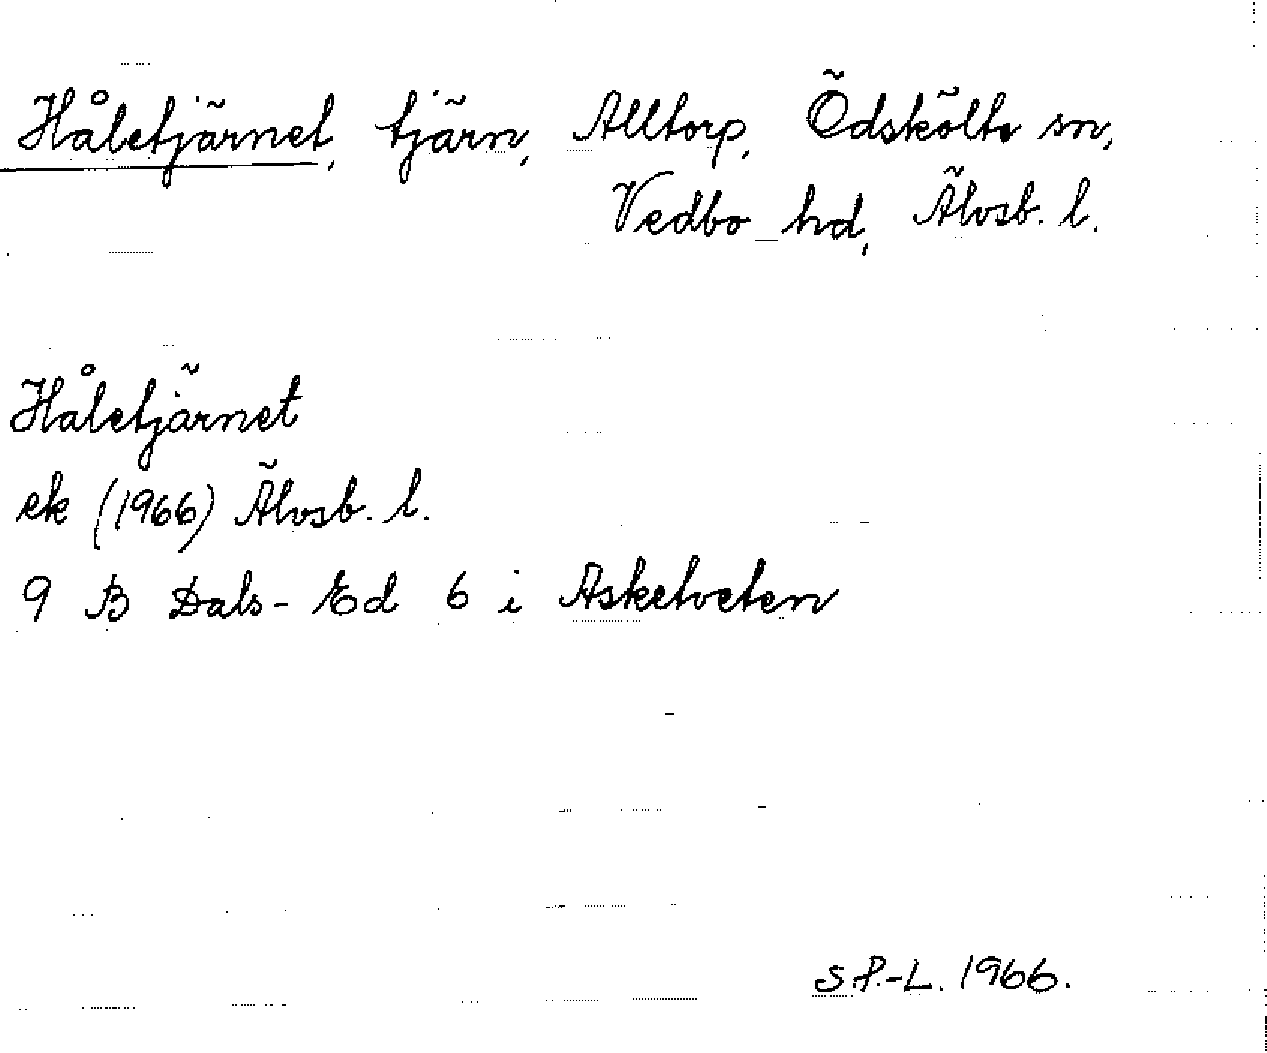 Håletjärnet, tjärn, Alltorp, Ödskölts sn,
Vedbo hd, Älvsb. l.
Håletjärnet
ek (1966) Älvsb. l.
9 B Dals-Ed 6 i Asketveten
S.P.-L. 1966.